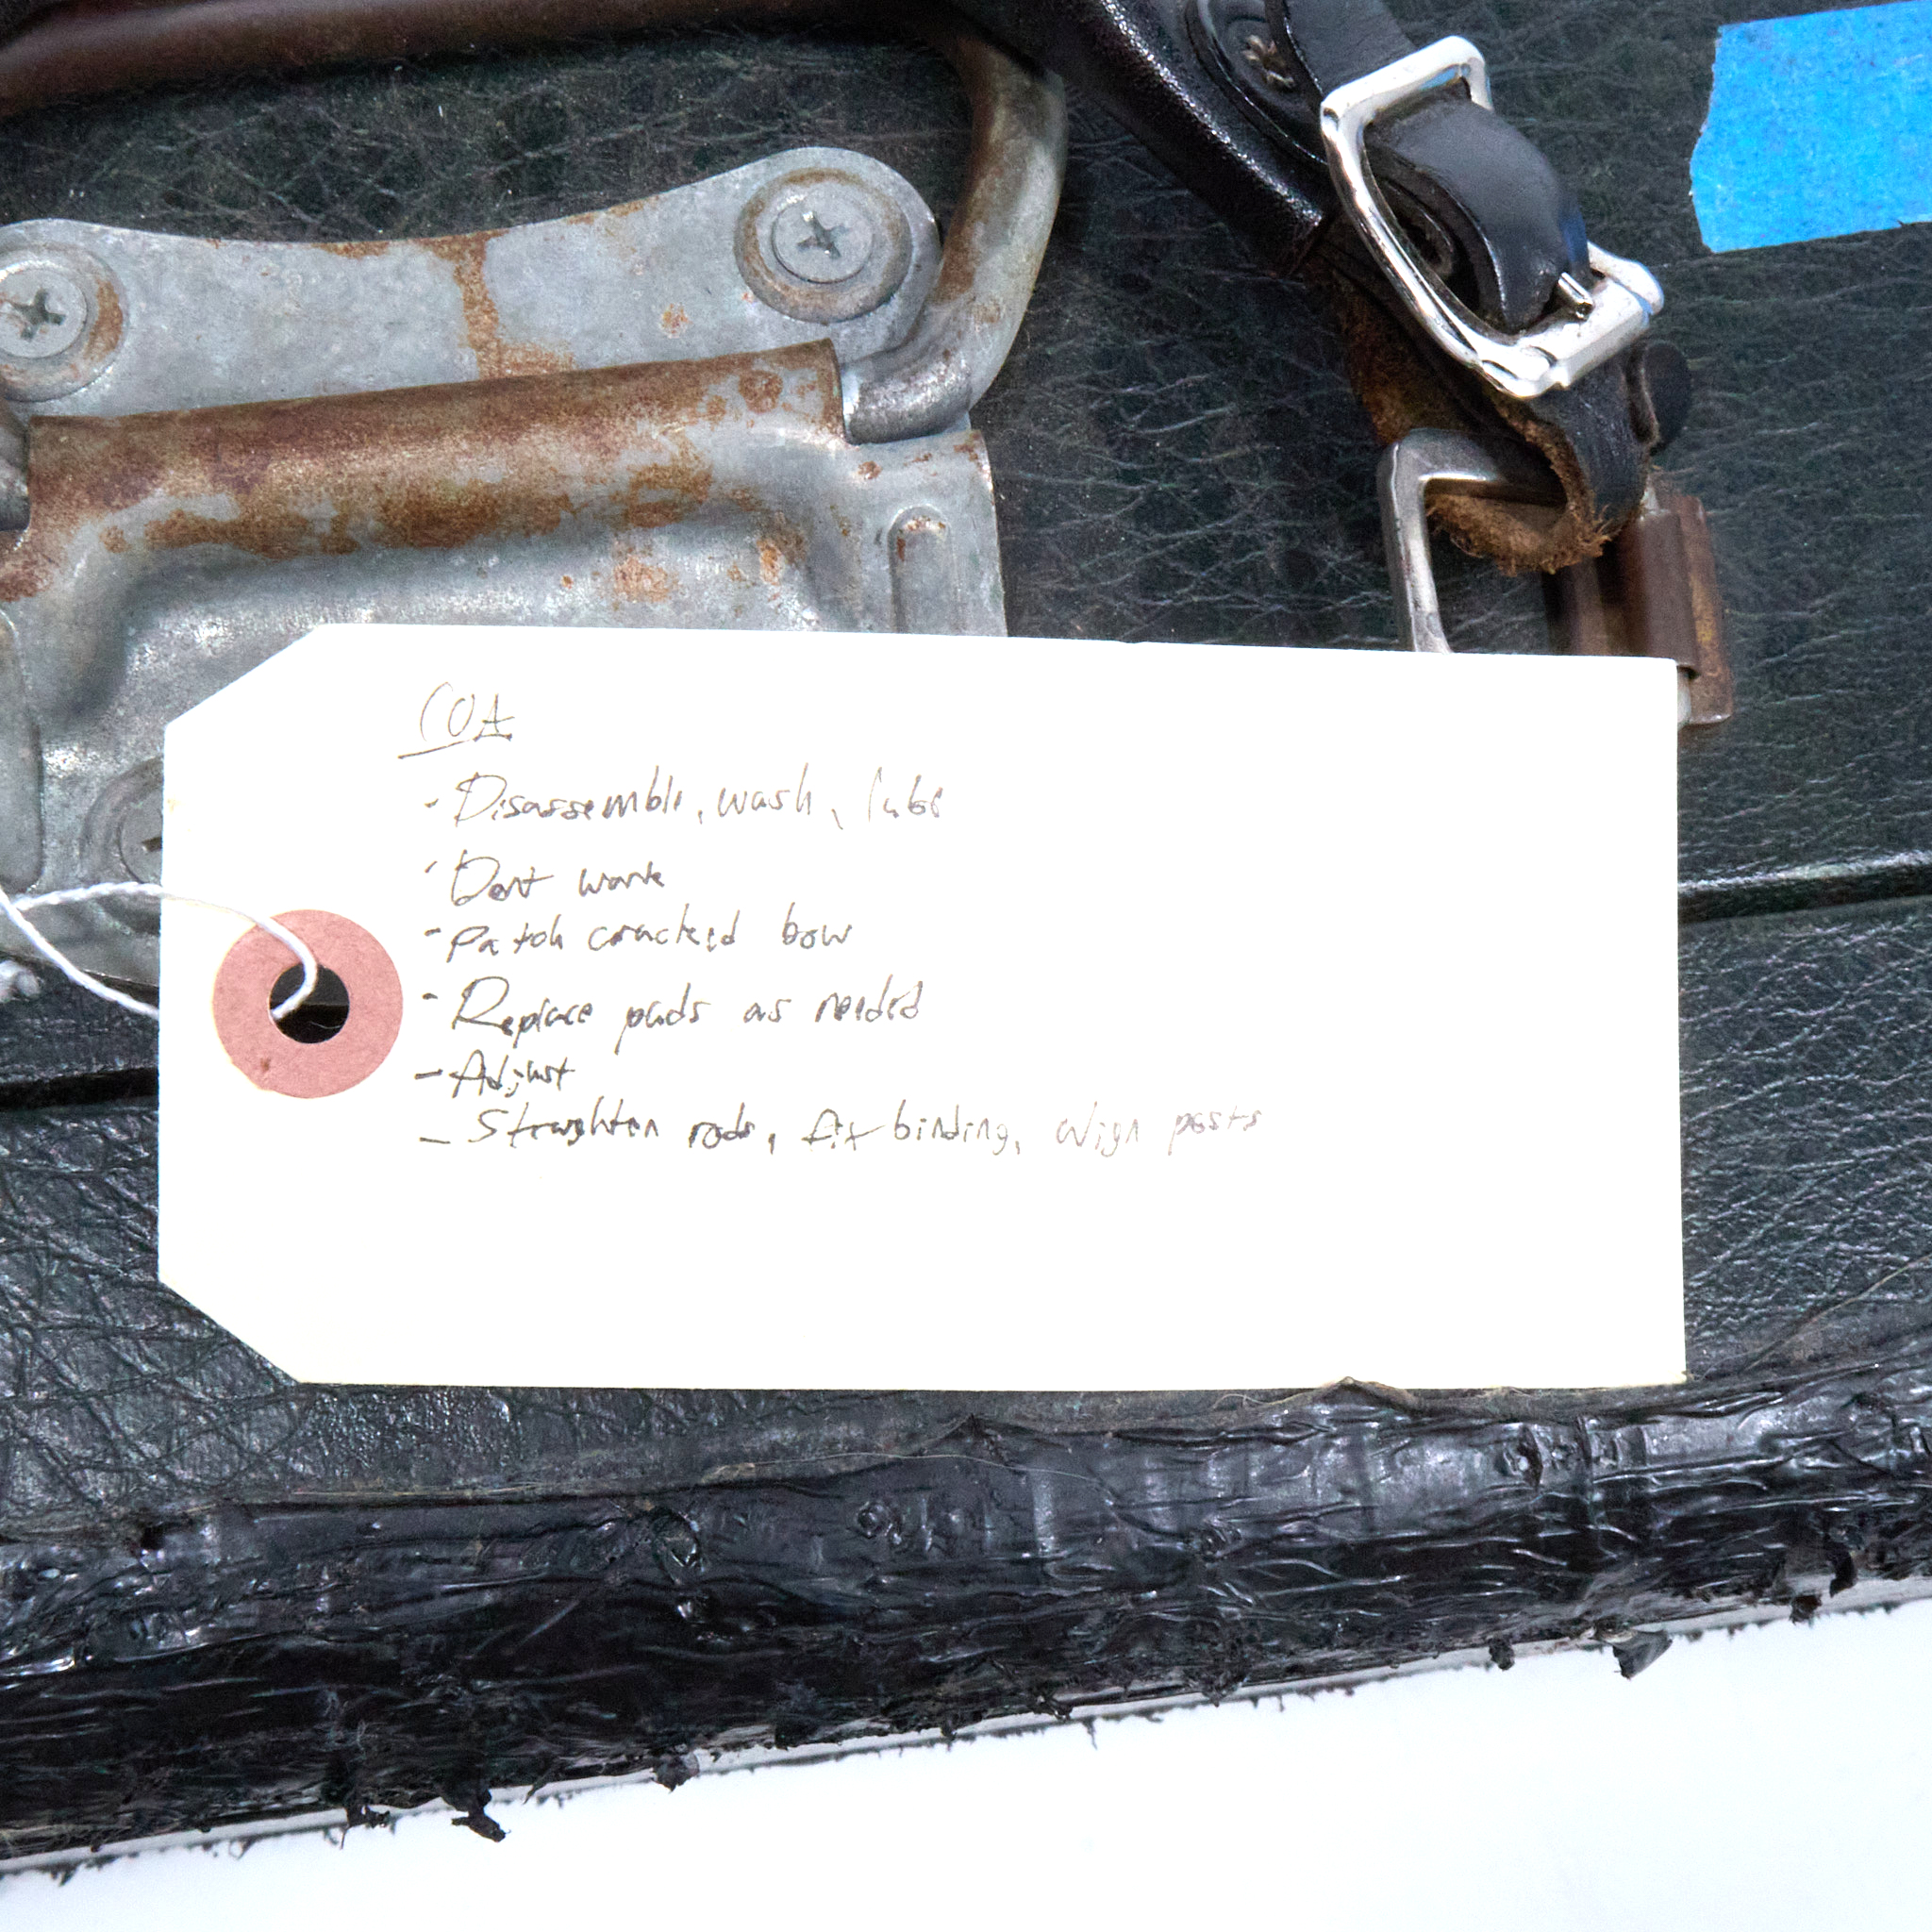 COA
- Disassemble, wash, lube
- Dent work
- Patch cracked bow
- Replace pads as needed
- Adjust
- Straighten rods, fix binding, align posts